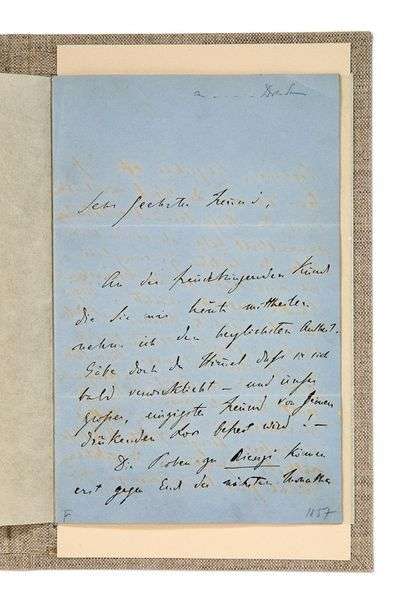 Sehr geehrter Freund,
An der freudbringenden Kunde
die Sie uns heute mittheilen
nehme ich den herzlichsten Antheil.
Gäbe doch der Himmel daß sie sich
bald verwirklicht – und unser
großer, einzigster Freund von seinem
drückenden Loos befreit wird! –
Die Proben zu Rienzi können
erst gegen Ende des nächsten Monathes
1857